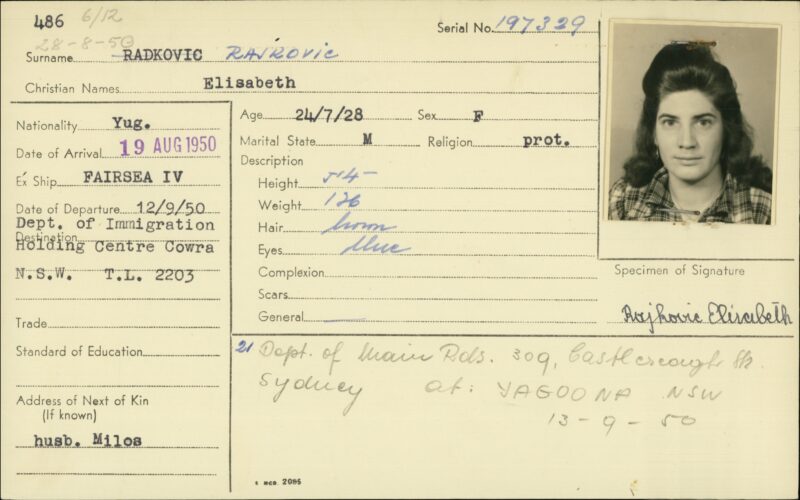 486 6/52
28-8-50
Serial No. 197329
Surname RADKOVIC RAJKOVIC
Christian Names Elisabeth
Nationality Yug.
Date of Arrival 19 AUG 1950
Ex Ship FAIRSEA IV
Date of Departure 12/9/50
Dept. of Immigration
Destination
Holding Centre Cowra
N.S.W. T.L. 2203
Trade
Standard of Education
Address of Next of Kin
(If known)
husb. Milos
Age 24/7/28 Sex F
Marital State M Religion prot.
Description
Height 5'4"
Weight 126
Hair brown
Eyes blue
Complexion
Scars
General
Specimen of Signature
Rajkovic Elisabeth
21 Dept. of Main Rds. 309, Castlereagh St.
Sydney at: YAGOONA NSW
13-9-50
2086